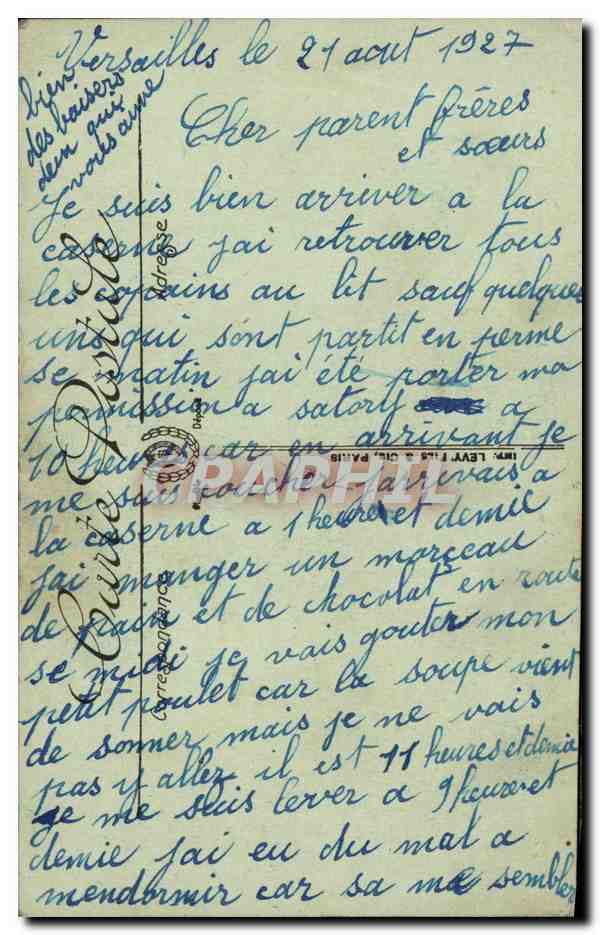 Versailles le 21 aout 1927
bien
des baisers
deun qui
vous aime
Cher parent frères
et sœurs
Je suis bien arriver a la
caserne jai retrouver tous
les copains au lit sauf quelques
uns qui sont partit en perme
se matin jai été porter ma
permission a satory a
10 heures car en arrivant je
me suis coucher jarrivais a
la caserne a 1 heure et demie
jai manger un morceau
de pain et de chocolat en route
se midi je vais gouter mon
petit poulet car la soupe vient
de sonner mais je ne vais
pas y aller il est 11 heures et demie
Je me suis lever a 9 heure et
demie jai eu du mal a
mendormir car sa me sembler
Carte Postale
Adresse
Correspondance
IMP. LÉVY FILS & CIE, PARIS
Déposé
CPAPHIL